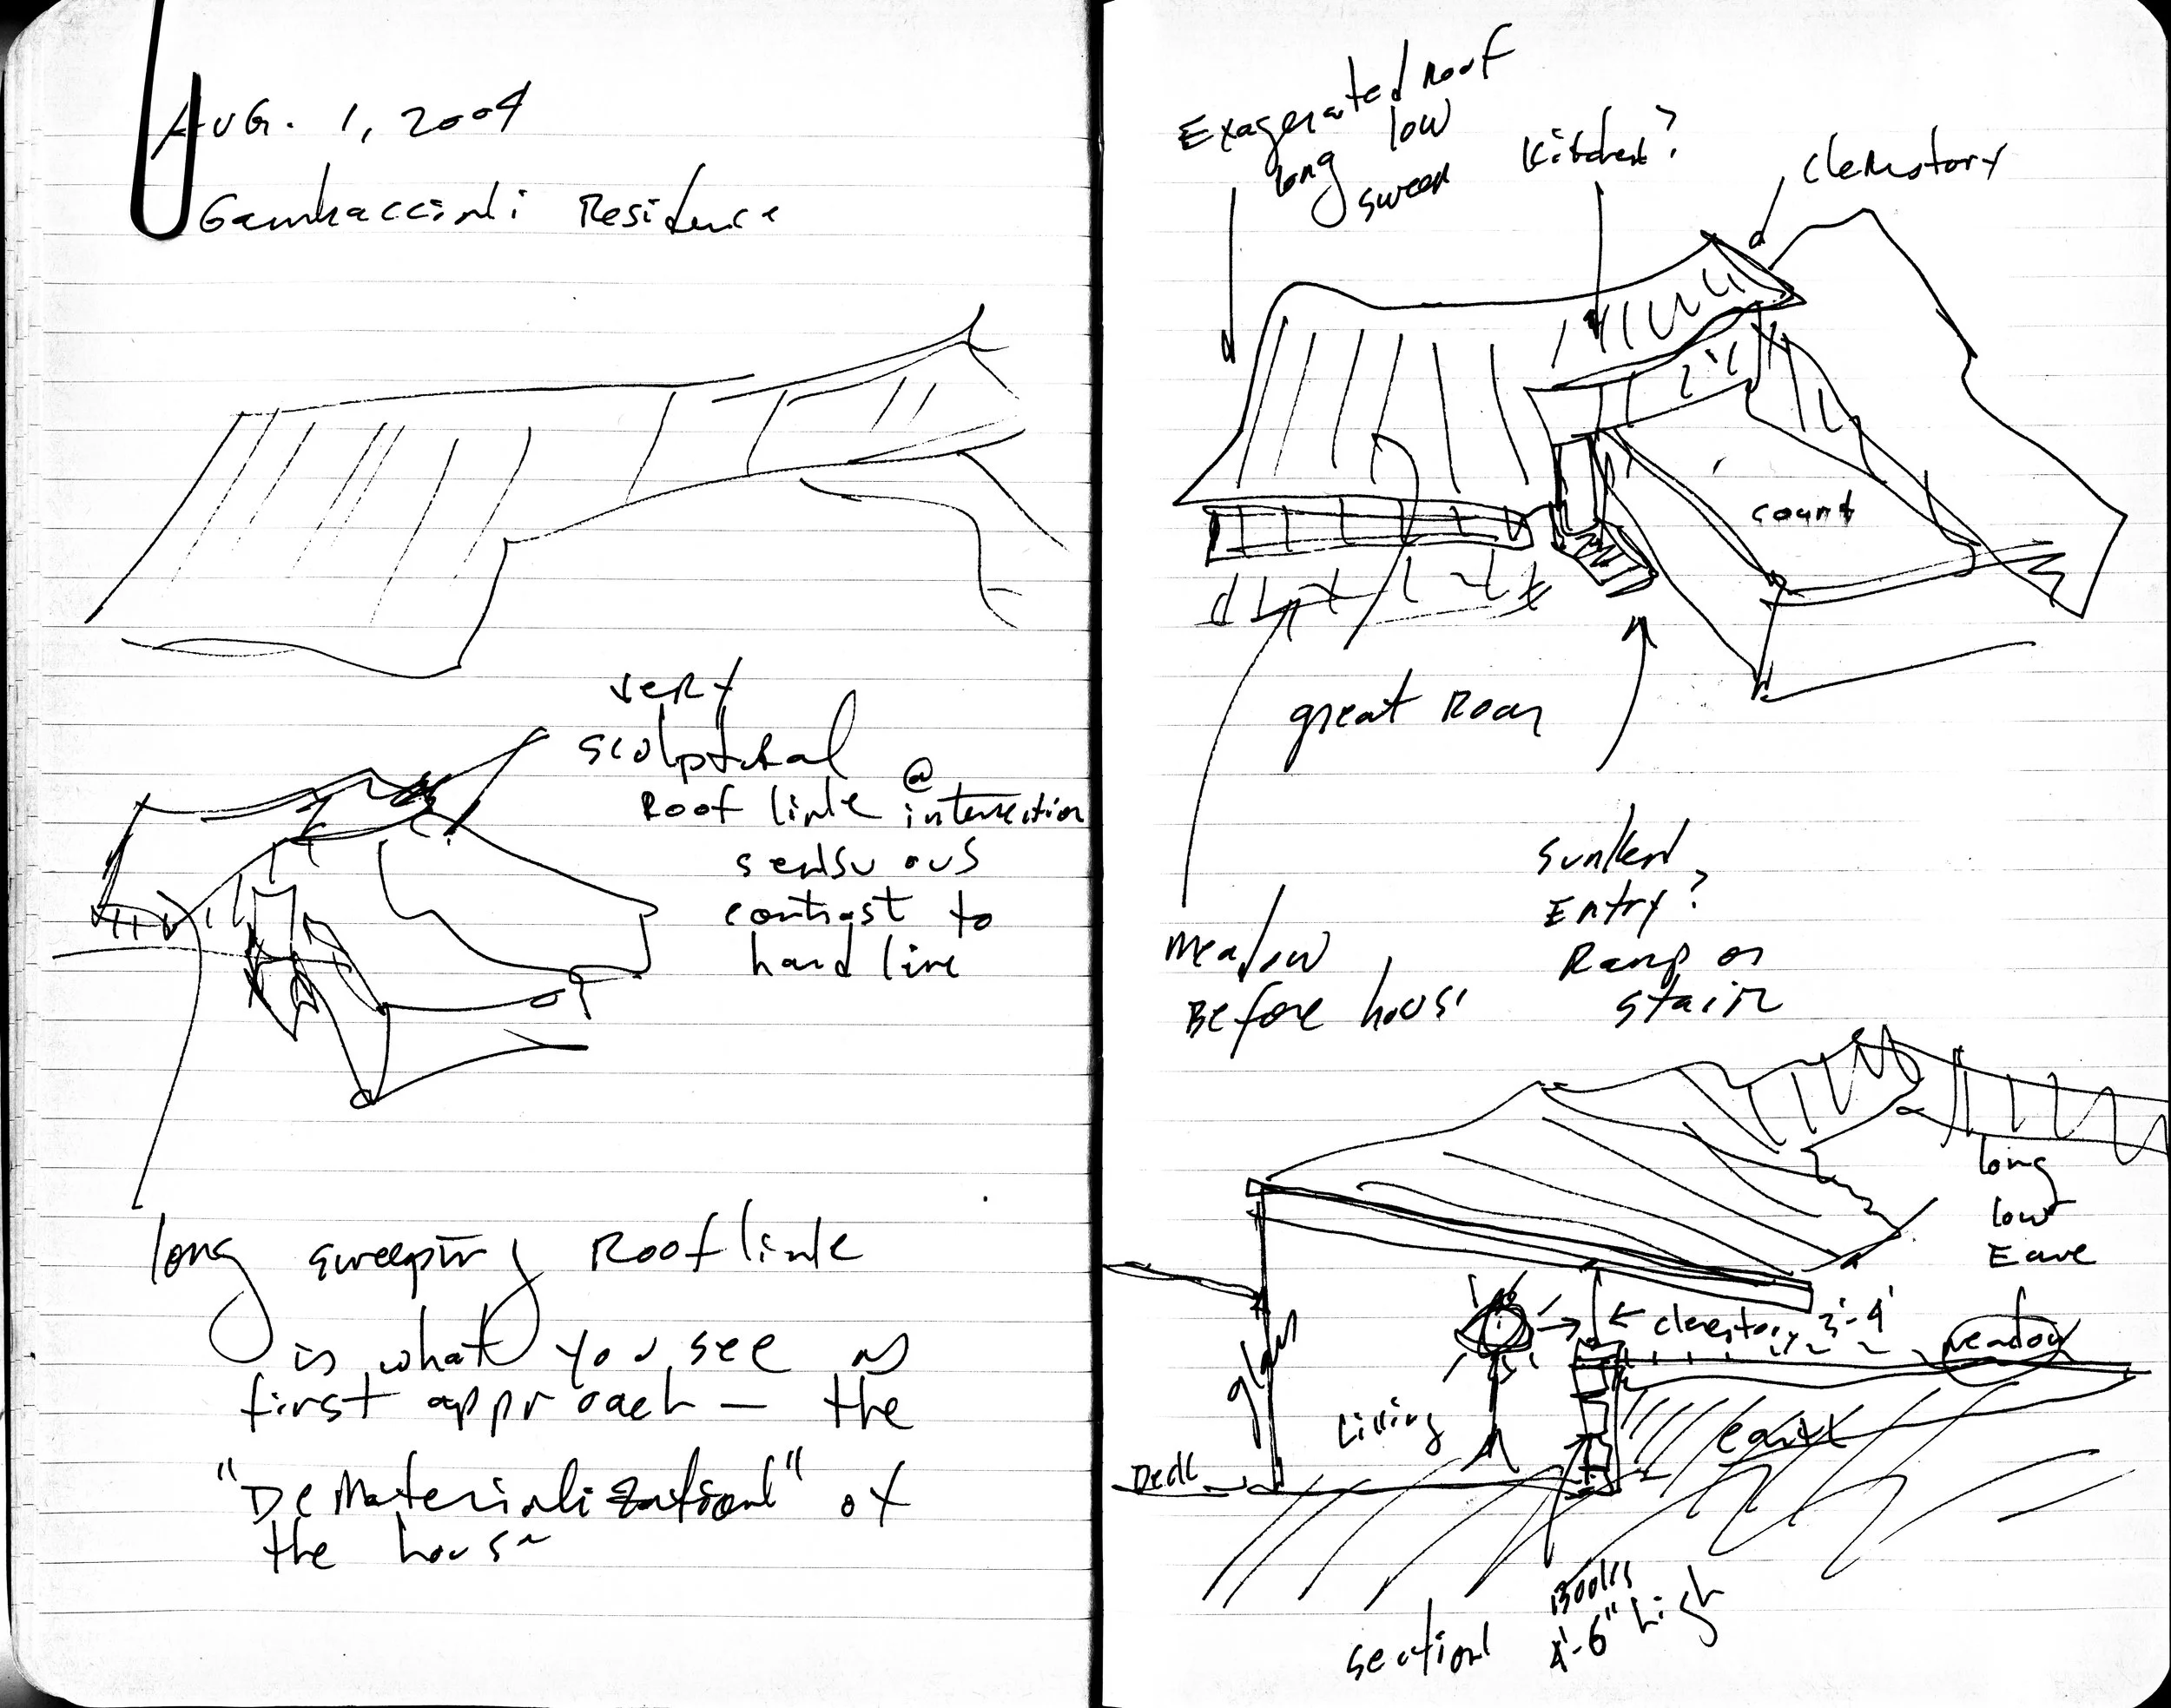 AUG. 1, 2009
Residence
very
sculptural
Roof line @
intersection
sensuous
contrast to
hard line
long sweeping Roof line
is what you see as
first approach — the
"DeMaterialization" of
the house
Exagerated roof
long low
sweep
Kitchen?
Clerestory
court
great Room
Meadow
Before house
Sunken
Entry?
Ramp or
stair
long
low
Eave
glass
clerestory 3'-4'
meadow
Living
earth
Deck
Books
4'-6" high
section